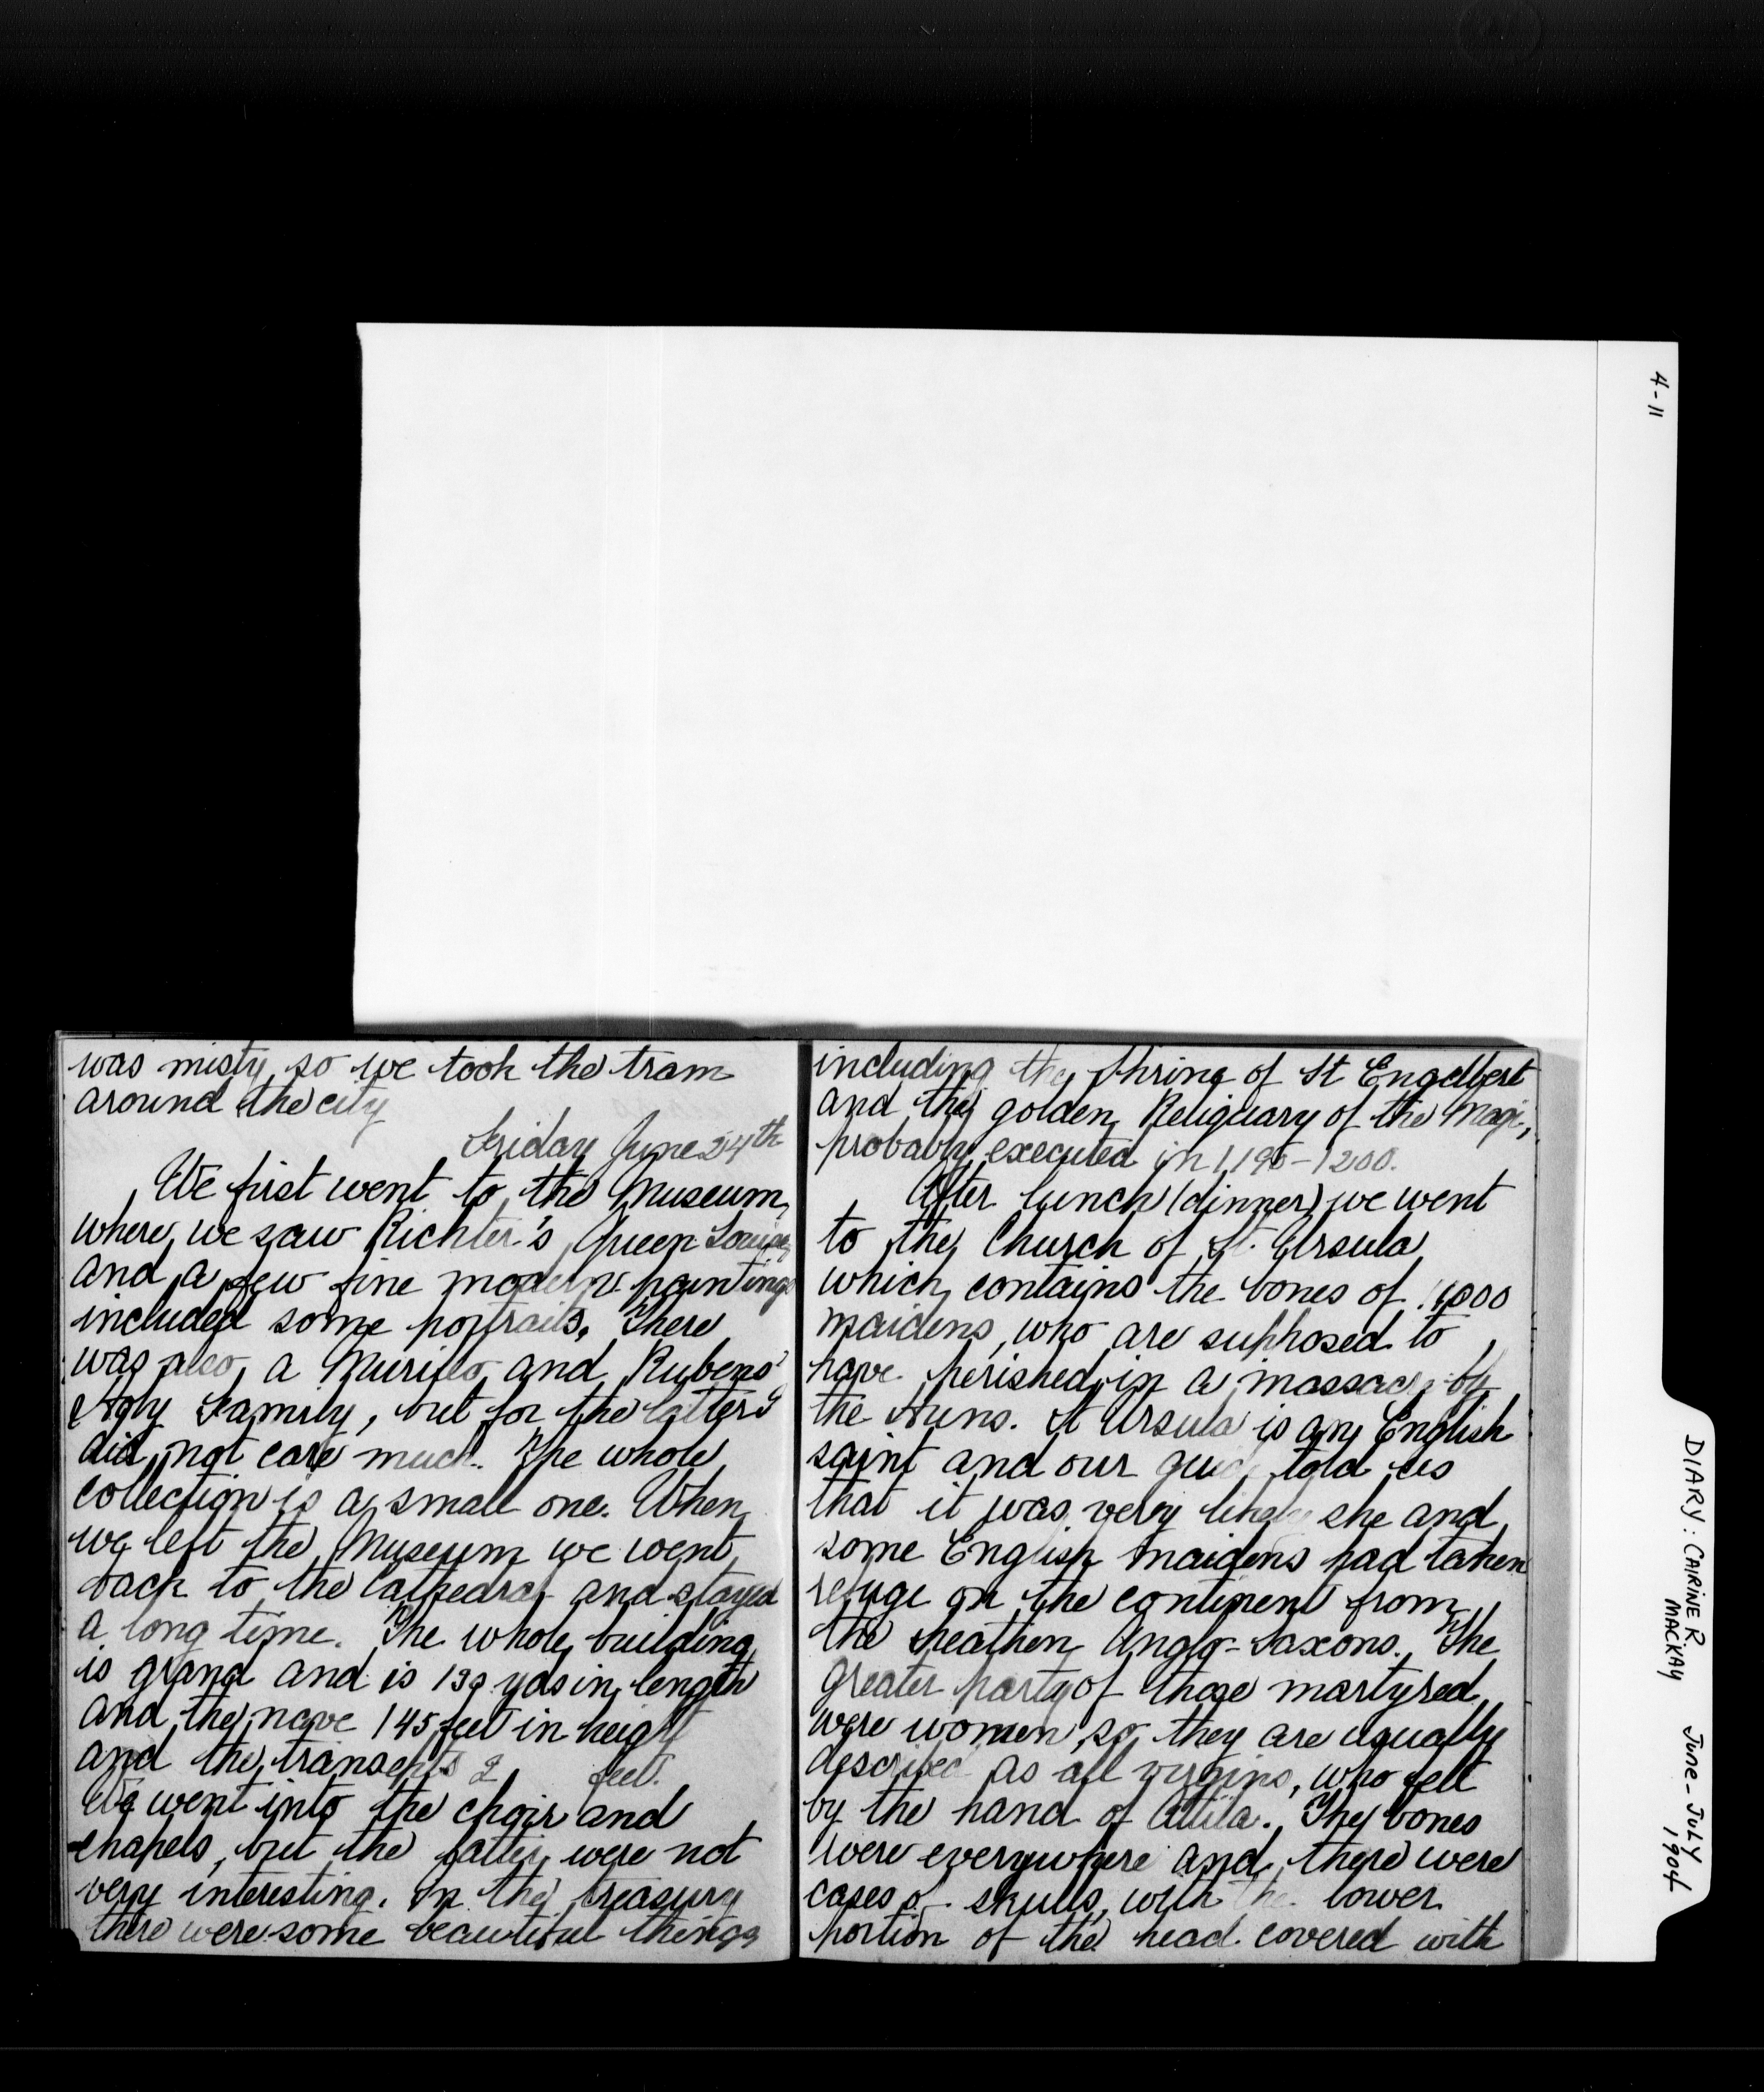 was misty, so we took the tram
around the city
Friday June 24th
We first went to the Museum,
where we saw Richter's Queen Louise,
and a few fine modern paintings
included some portraits. There
was also a Murillo and Rubens'
Holy Family, but for the latter I
did not care much. The whole
collection is a small one. When
we left the Museum we went
back to the Cathedral and stayed
a long time. The whole building
is grand and is 139 yds in length
and the nave 145 feet in height
and the transepts 2 feet.
We went into the choir and
chapels, but the latter were not
very interesting. In the treasury
there were some beautiful things
including the shrine of St Engelbert
and the golden Reliquary of the Magi,
probably executed in 1190-1200.
After lunch (dinner) we went
to the Church of St. Ursula
which contains the bones of 11000
maidens, who are supposed to
have perished in a massacre by
the Huns. St Ursula is an English
saint and our guide told us
that it was very likely she and
some English maidens had taken
refuge on the continent from
the heathen Anglo-Saxons. The
greater party of those martyred
were women, so they are equally
described as all virgins, who fell
by the hand of Attila. They bones
were everywhere and there were
cases of skulls, with the lower
portion of the head covered with
4-11
DIARY: CAIRINE R. MACKAY
June-July 1904